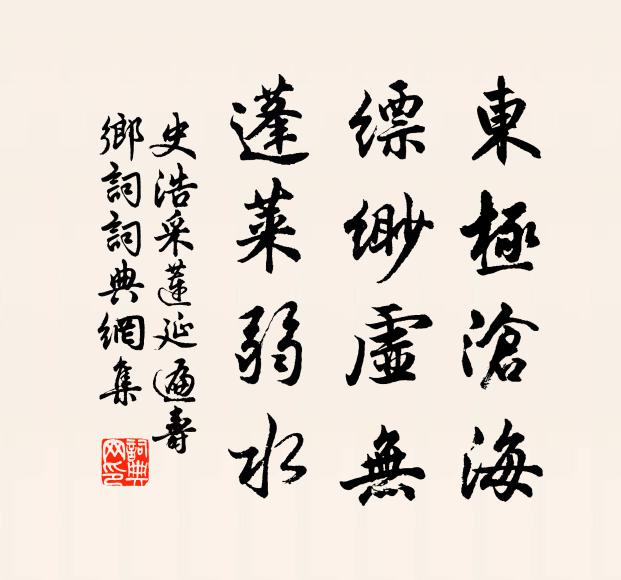 東極滄海
縹緲虛無
蓬萊弱水
史浩采蓮延遍壽
鄉詞詞典網集
詞典
网印